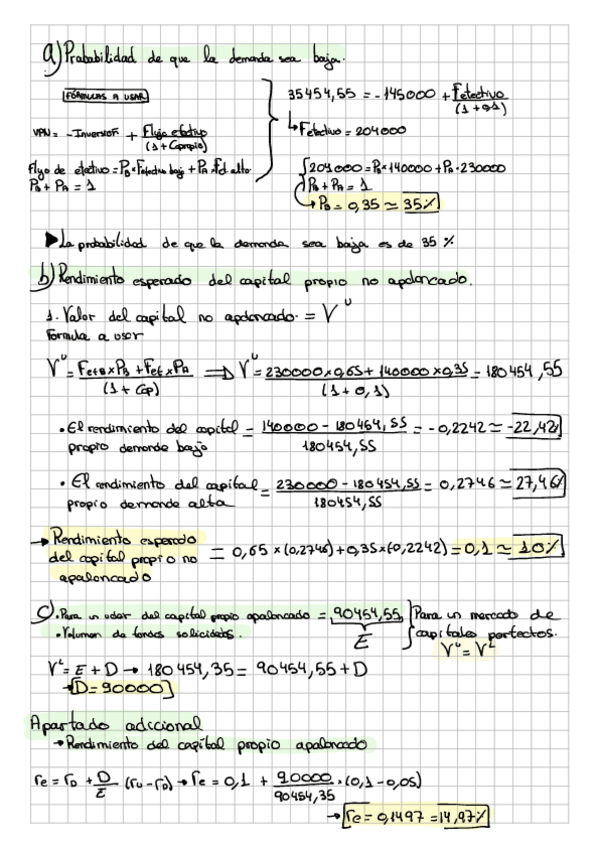 a) Probabilidad de que la demanda sea baja.
FÓRMULAS A USAR
VPN = -Inversión + Flujo efectivo / (1 + Cpropio)
Flujo de efectivo = PB × Fefectivo bajo + PA × Fef alto
PB + PA = 1
35454,55 = -145000 + Fefectivo / (1+0,1)
↳ Fefectivo = 204000
204000 = PB × 140000 + PA · 230000
PB + PA = 1
→ PB = 0,35 ≃ 35%
▶ La probabilidad de que la demanda sea baja es de 35 %
b) Rendimiento esperado del capital propio no apalancado.
1. Valor del capital no apalancado. = V^U
Formula a usar
V^U = Fef B × PB + Fef × PA / (1 + Cap) ⟹ V^U = 230000 × 0,65 + 140000 × 0,35 / (1 + 0,1) = 180454,55
• El rendimiento del capital propio demanda baja = 140000 - 180454,55 / 180454,55 = -0,2242 ≃ -22,42%
• El rendimiento del capital propio demanda alta = 230000 - 180454,55 / 180454,55 = 0,2746 ≃ 27,46%
→ Rendimiento esperado
del capital propio no = 0,65 × (0,2746) + 0,35 × (-0,2242) = 0,1 ≃ 10%
apalancado
c) • Para un valor del capital propio apalancado = 90454,55
E
• Volumen de fondos solicitados.
Para un mercado de
capitales perfectos.
V^U = V^L
V^L = E + D → 180454,35 = 90454,55 + D
→ D = 90000
Apartado adicional
→ Rendimiento del capital propio apalancado
re = rD + D/E (ru - rD) → re = 0,1 + 90000 / 90454,35 · (0,1 - 0,05)
→ re = 0,1497 = 14,97%